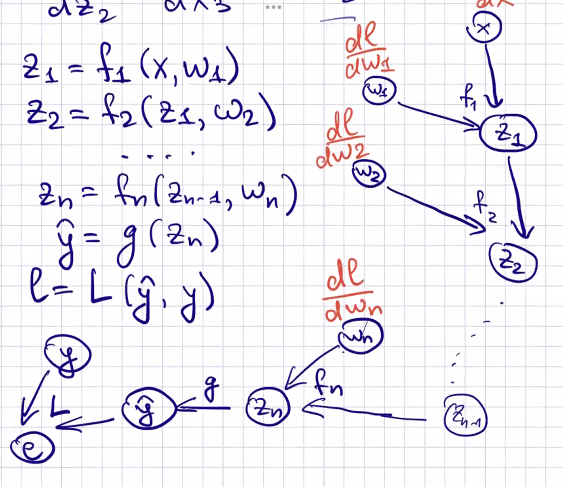 dz₂ dx₃ ...
dx
z₁ = f₁(x, w₁)
z₂ = f₂(z₁, w₂)
. . . . .
zₙ = fₙ(zₙ₋₁, wₙ)
ŷ = g(zₙ)
l = L(ŷ, y)
x
dl/dw₁
w₁
f₁
z₁
dl/dw₂
w₂
f₂
z₂
dl/dwₙ
wₙ
fₙ
zₙ₋₁
zₙ
g
ŷ
y
L
e